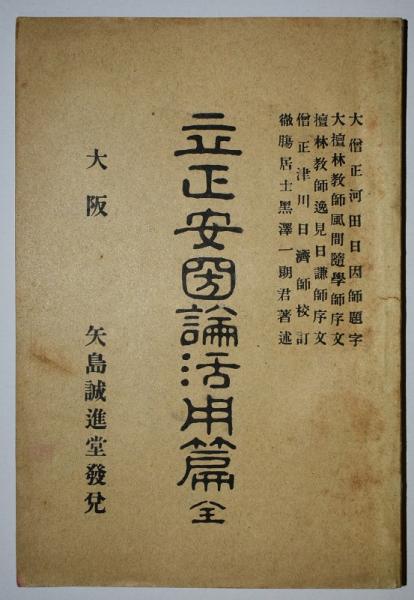 大僧正河田日因師題字
大檀林教師風間隨學師序文
檀林教師逸見日謙師序文
僧正津川日濟師校訂
徹膓居士黑澤一朗君著述
立正安国論活用篇全
大阪 矢島誠進堂發兌